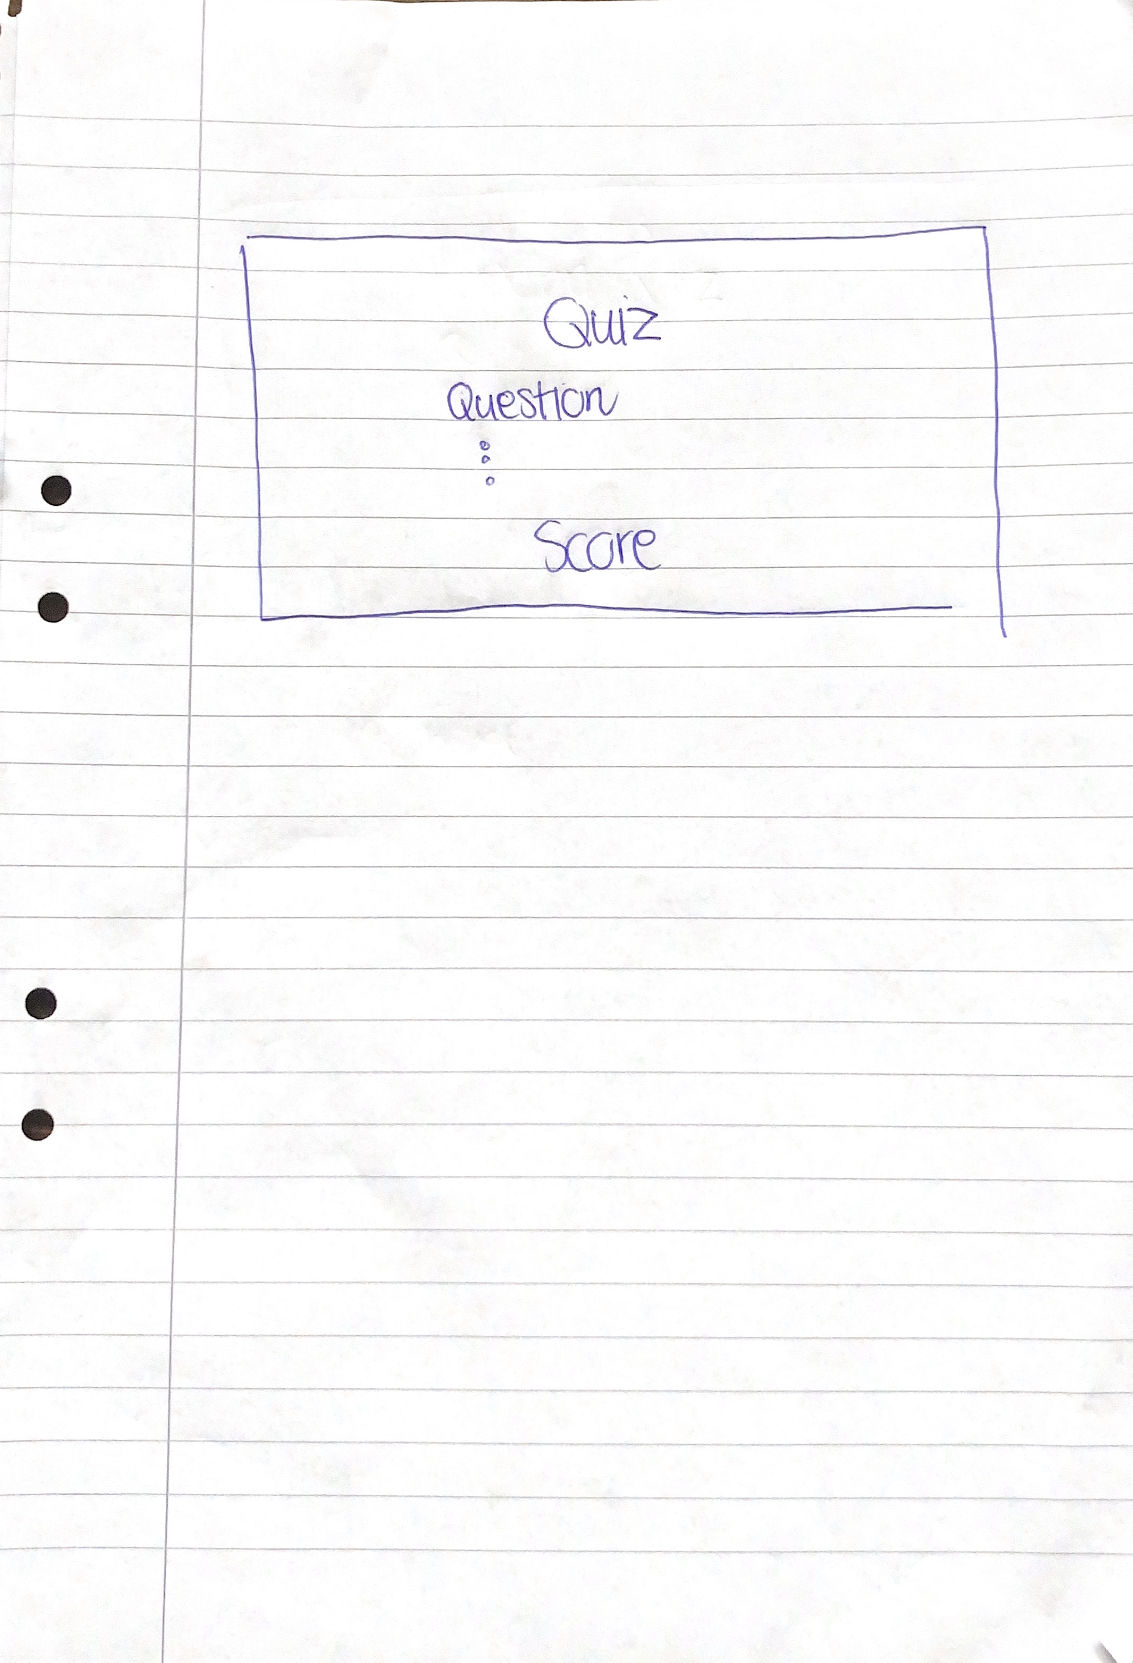 Quiz
Question
Score